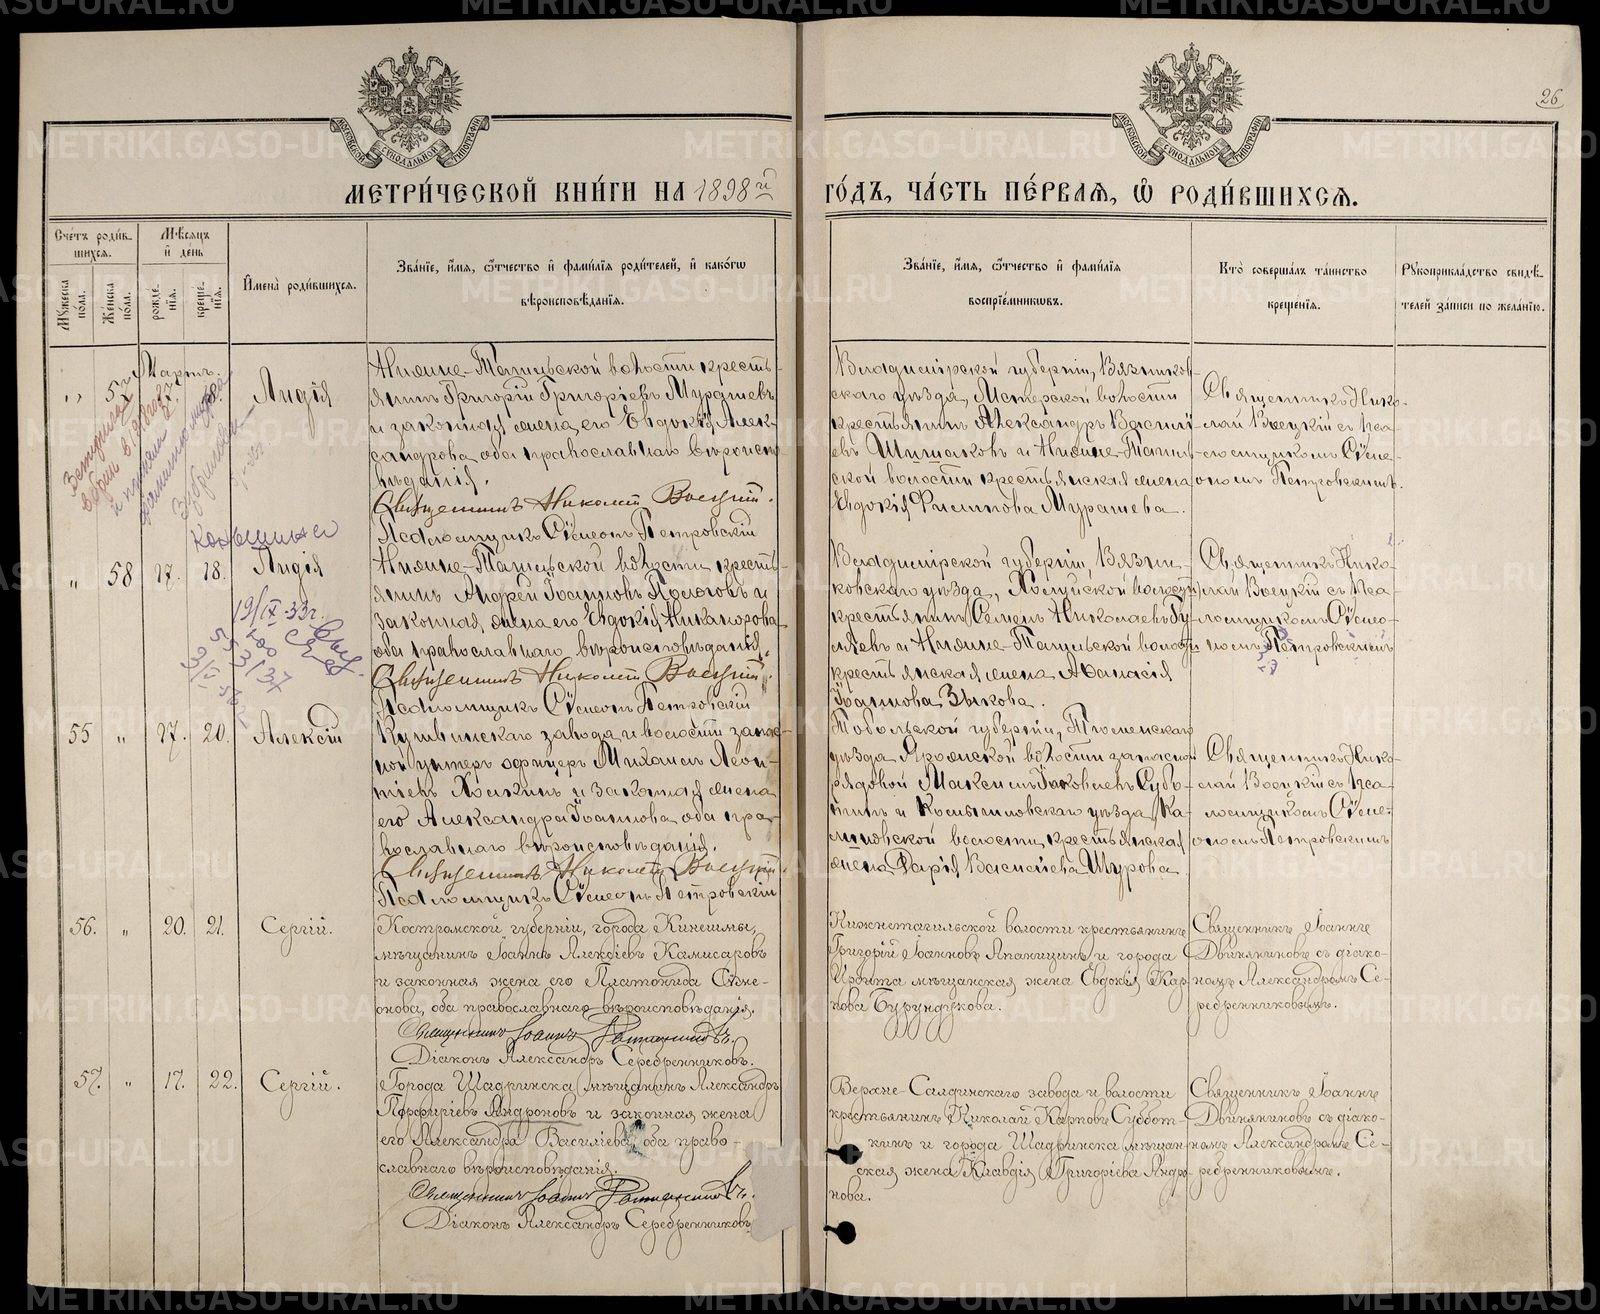 26
МЕТРИ́ЧЕСКОЙ КНИ́ГИ НА 1898й ГО́ДЪ, ЧА́СТЬ ПЕ́РВАѦ, Ѿ РОДИ́ВШИХСѦ.
Сче́тъ роди́в-
шихсѧ.
Мѣсѧцъ
и҆ де́нь
Мꙋ́жеска по́ла.
Же́нска по́ла.
рожде́-
нїѧ.
креще́-
нїѧ.
И҆мена̀ роди́вшихсѧ.
Зва́нїе, и҆́мѧ, ѻ҆́тчество и҆ фами́лїѧ роди́телей, и҆ како́гѡ
вѣроисповѣ́данїѧ.
Зва́нїе, и҆́мѧ, ѻ҆́тчество и҆ фами́лїѧ
воспрїе́мникѡвъ.
Кто̀ соверша́лъ та́инство
креще́нїѧ.
Рꙋкоприкла́дство свидѣ́-
телей за́писи по жела́нїю.
Мартъ.
„ 57 17.
Лидія
Нижне-Тагильской волости кресть-
янинъ Григорій Григоріевъ Мурашевъ
и законная жена его Евдокія Алек-
сандрова оба православнаго вѣроиспо-
вѣданія.
Священникъ Николай Воецкій.
Псаломщикъ Сѵмеонъ Петровскій
Владимірской губерніи, Вязников-
скаго уѣзда, Мстерской волости
крестьянинъ Александръ Васильі-
евъ Шишаковъ и Нижне-Тагиль-
ской волости крестьянская жена
Евдокія Филипова Мурашева.
Священникъ Нико-
лай Воецкій съ пса-
ломщикомъ Сѵме-
ономъ Петровскимъ.
„ 58 17. 18.
Лидія
19/IX-33г.
Нижне-Тагильской волости кресть-
янинъ Андрей Іоанновъ Пологовъ и
законная жена его Евдокія Никанорова
оба православнаго вѣроисповѣданія.
Священникъ Николай Воецкій.
Псаломщикъ Сѵмеонъ Петровскій
Владимірской губерніи, Вязни-
ковскаго уѣзда, Холуйской волости
крестьянинъ Семенъ Николаевъ Бу-
и Нижне-Тагильской волости
крестьянская жена Аѳанасія
Іоаннова Зыкова.
Священникъ Нико-
лай Воецкій съ пса-
ломщикомъ Сѵмео-
номъ Петровскимъ
55 „ 17. 20.
Алексій
Кушвинскаго завода и волости запас-
ной унтеръ офицеръ Михаилъ Леон-
тіевъ и законная жена
его Александра Іоаннова оба пра-
вославнаго вѣроисповѣданія.
Священникъ Николай Воецкій.
Псаломщикъ Сѵмеонъ Петровскій
Тобольской губерніи, Тюменскаго
уѣзда волости запасной
рядовой Максимъ Іаковлевъ Субо-
тинъ и Камышловскаго уѣзда, Ка-
волости крестьянская
жена Дарія Васильева Шурова
Священникъ Нико-
лай Воецкій съ пса-
ломщикомъ Сѵме-
ономъ Петровскимъ
56. „ 20. 21.
Сергій.
Костромской губерніи, города Кинешмы,
мѣщанинъ Іоаннъ Алексіевъ Камисаровъ
и законная жена его Платонида Сѵме-
онова, оба православнаго вѣроисповѣданія.
Священникъ Іоаннъ
Діаконъ Александръ Серебренниковъ.
Нижнетагильской волости крестьянинъ
Григорій Іоанновъ Апаницинъ и города
Ирбита мѣщанская жена Евдокія Кар-
пова Бурундукова.
Священникъ Іоаннъ
Двиняниновъ съ діако-
номъ Александромъ Се-
ребренниковымъ.
57. „ 17. 22.
Сергій.
Города Шадринска мѣщанинъ Александръ
Порфиріевъ Андроновъ и законная жена
его Александра Василіева, оба право-
славнаго вѣроисповѣданія.
Священникъ Іоаннъ
Діаконъ Александръ Серебренниковъ
Верхне-Салдинскаго завода и волости
крестьянинъ Николай Карповъ Суббот-
кинъ и города Шадринска мѣщан-
ская жена Клавдія Григоріева Андро-
нова.
Священникъ Іоаннъ
Двиняниновъ съ діако-
номъ Александромъ Се-
ребренниковымъ.
METRIKI.GASO-URAL.RU